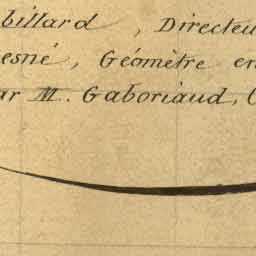 billard, Directeu
esné, Géomètre en
ar M. Gaboriaud, C